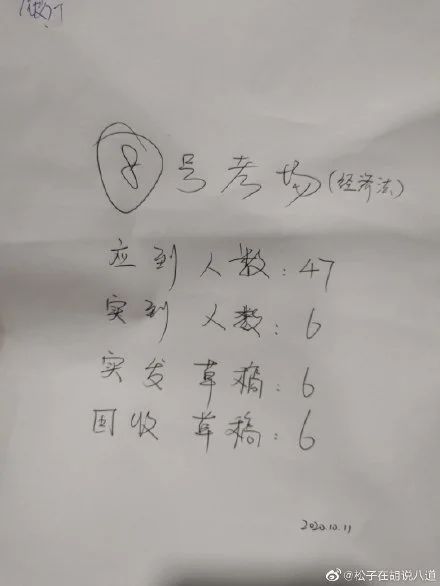 8号考场(经济法)
应到人数:47
实到人数:6
实发草稿:6
回收草稿:6
2020.10.11
@松子在胡说八道